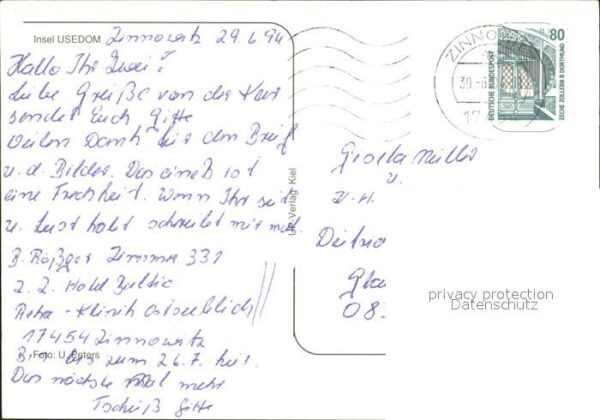 Insel USEDOM Zinnowitz 29.6.94
Hallo Ihr Zwei!
Liebe Grüße von der Kur
sendet Euch Gitte
Vielen Dank für den Brief
u. d. Bilder. Das eine ist
eine Frechheit. Wenn Ihr
u. Lust habt schreibt mir mal.
B. Zimmer 331
z. Z. Hotel Baltic
Reha-Klinik Ostseeblick
17454 Zinnowitz
Bin bis zum 26.7. hier.
Das nächste Mal mehr
Tschüß Gitte
Foto: U. Peters
Verlag Kiel
ZINNO
30.-6
17
80
DEUTSCHE BUNDESPOST
ZECHE ZOLLERN II DORTMUND
Gisela Müller
u.
Dietric
Gla
08
privacy protection
Datenschutz